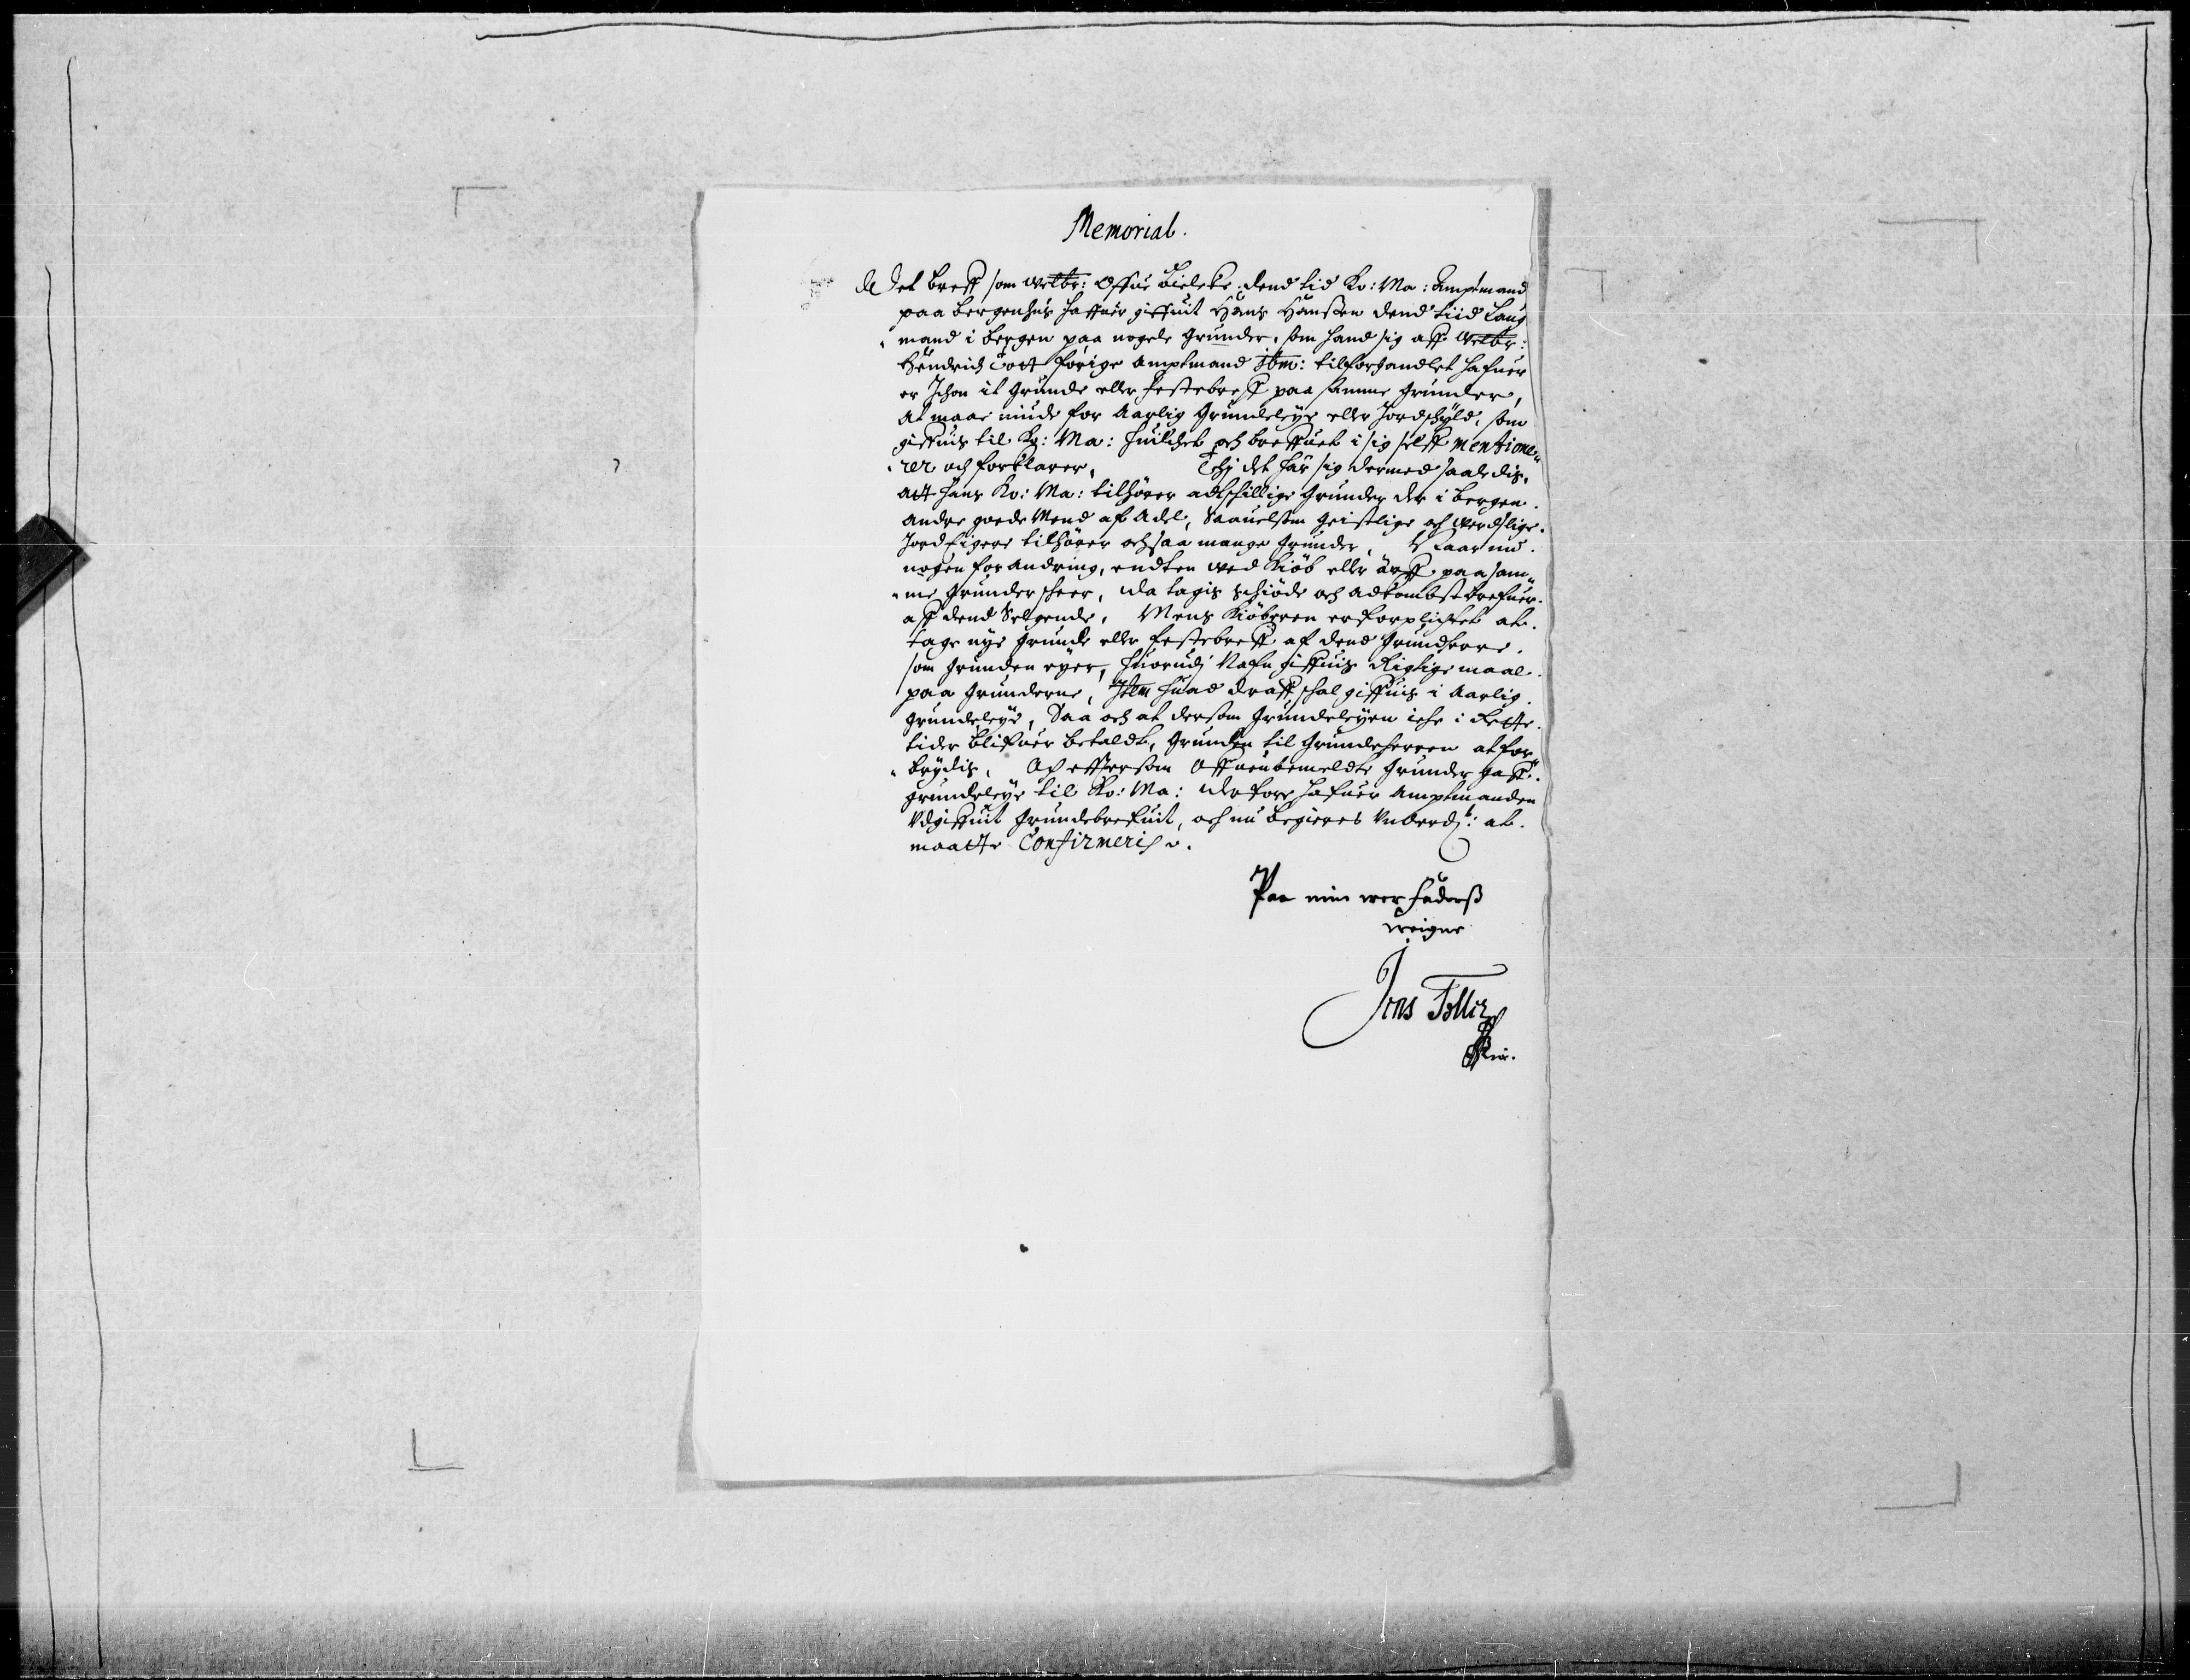 Memorial.
Det breff som welbr: Offue Bielcke, dend tid Ko: Ma: Amptmand
paa bergenhus haffuer giffuit Hans Hansen dend tiid Laug
mand i bergen paa nogele grunder, som hand sig aff welbr:
Hendrich Tott forige amptmand ibm: tilforhandlet hafuer
er Ichon it Grunde eller festebreff paa samme grunder,
at maae niude for Aarlig Grundeleye eller Jordskyld, som
giffuis til Ko: Ma: huilchet och breffuet i sig selff mentione
rer och forklarer, Thj det har sig dermed saaledis,
att hans Ko: Ma: tilhörer adtschillige grunder der i bergen.
andre goede Mend af Adel, saauelsom geistlige och werdslige.
Jord Eigere tilhörer ochsaa mange grunder, Naar nu.
nogen forandring, endten wed Kiöb eller arff paa sam
me grunder scheer, da tagis schiöde och adkombst brefuer.
aff dend Selgende, Mens Kiöberen er forplichtet at.
tage nye grunde eller festebreff af dend grundherre.
som grunden eyer, huorudj Nafn giffuis Rigtige maal.
paa grunderne, Item huad draff schal giffuis i Aarlig.
grundeleye, Saa och at dersom grundeleyen iche i Rette.
tider blifuer betaldt, grunden til grundeherren at for
brydis, Och effter som Offuenbemeldte grunder gaff
grundeleye til Ko: Ma: derfore hafuer Amptmanden
Vdgiffuit grundebrefuit, och nu begieres Vnderd: at.
maatte Confirmeris.
Paa min werfaderß
weigne
Jens Toller